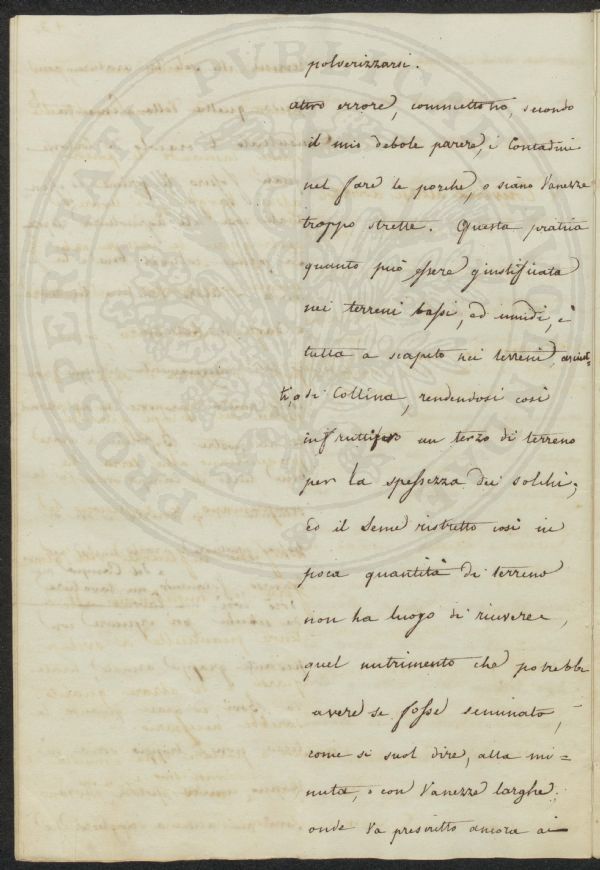 polverizzarsi.
altro errore, commettono, secondo
il mio debole parere, i Contadini
nel fare le porche, o siano Vanezze
troppo strette. Questa pratica
quanto può essere giustificata
nei terreni bassi, ed umidi, è
tutta a scapito nei terreni, asciut-
ti, o di Collina, rendendosi così
infruttifero un terzo di terreno
per la spessezza dei solchi;
Ed il Seme ristretto così in
poca quantità di terreno
non ha luogo di ricevere,
quel nutrimento che potrebbe
avere se fosse seminato,
come si suol dire, alla mi=
nuta, o con Vanezze larghe.
onde va prescritto ancora ai
PROSPERITATI PUBLICAE